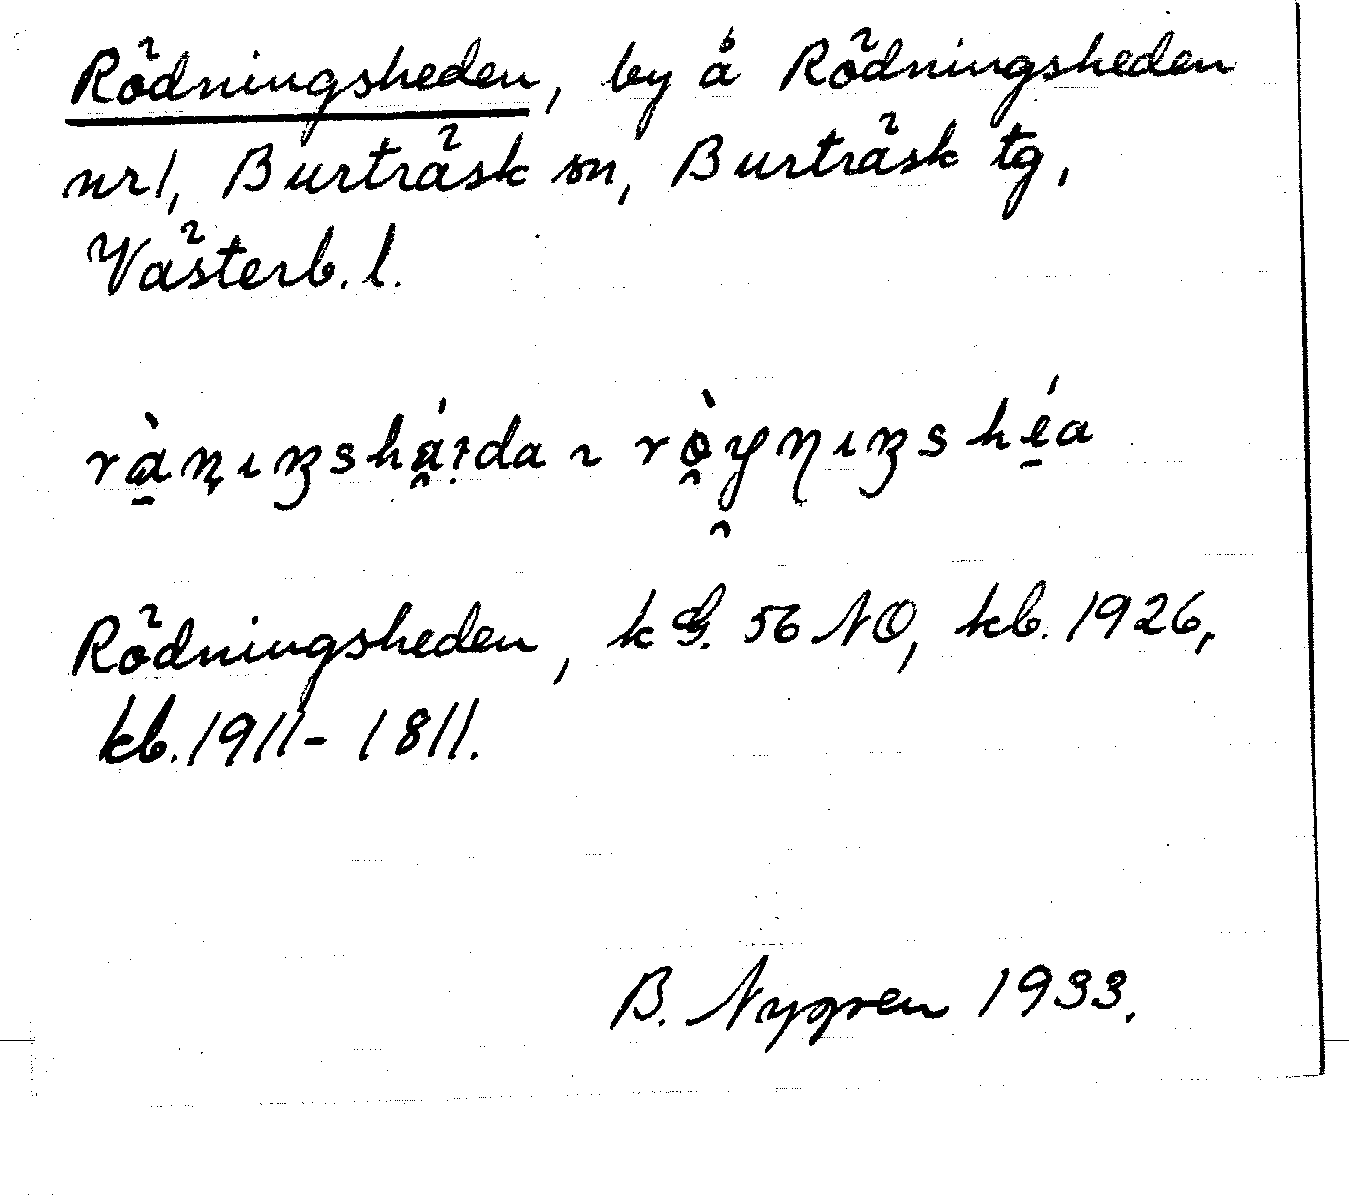 Rödningsheden, by å Rödningsheden
nr 1, Burträsk sn, Burträsk tg,
Västerb. l.
Rödningsheden, k G. 56 NO, kb. 1926,
kb. 1911-1811.
B. Nygren 1933.